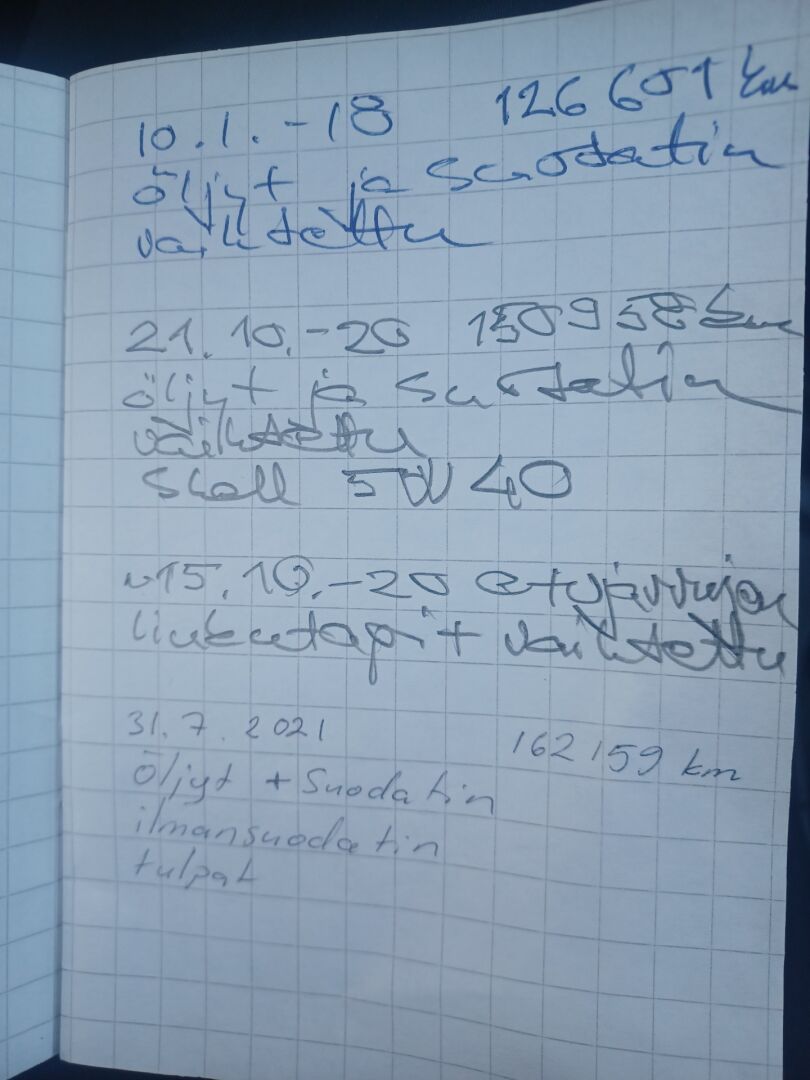 10.1.-18 126 601 km
öljyt ja suodatin
vaihdettu
21.10.-20 150958 km
öljyt ja suodatin
vaihdettu
Shell 5W 40
~15.10.-20 etujarrujen
liukutapit vaihdettu
31.7.2021 162 159 km
Öljyt + Suodatin
ilmansuodatin
tulpat